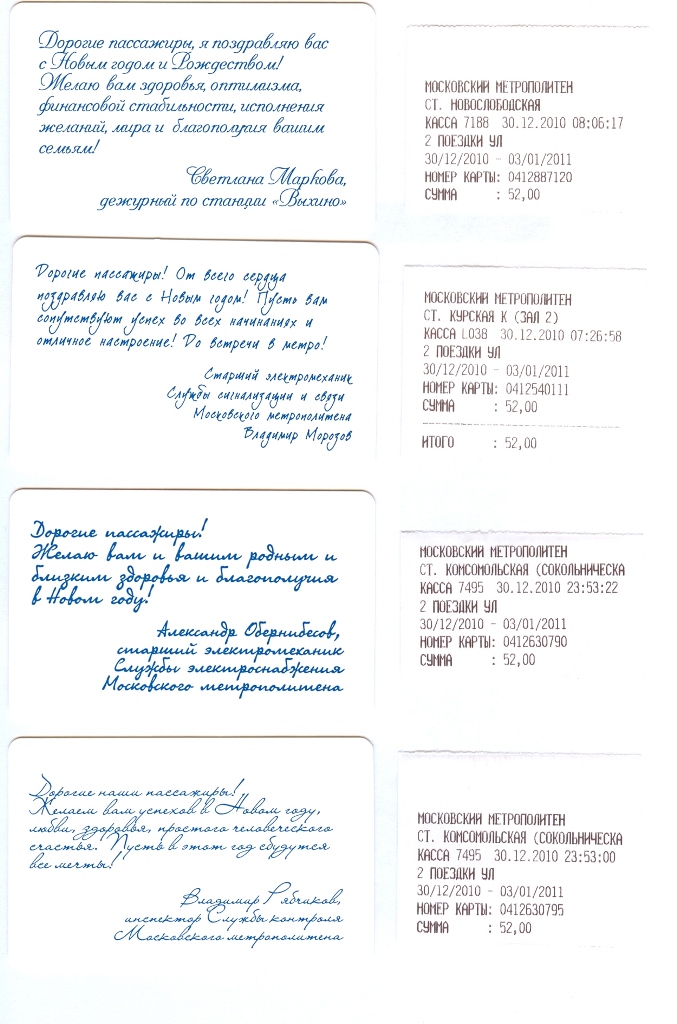 Дорогие пассажиры, я поздравляю вас
с Новым годом и Рождеством!
Желаю вам здоровья, оптимизма,
финансовой стабильности, исполнения
желаний, мира и благополучия вашим
семьям!
Светлана Маркова,
дежурный по станции «Выхино»
МОСКОВСКИЙ МЕТРОПОЛИТЕН
СТ. НОВОСЛОБОДСКАЯ
КАССА 7188 30.12.2010 08:06:17
2 ПОЕЗДКИ УЛ
30/12/2010 - 03/01/2011
НОМЕР КАРТЫ: 0412887120
СУММА : 52,00
Дорогие пассажиры! От всего сердца
поздравляю вас с Новым годом! Пусть вам
сопутствуют успех во всех начинаниях и
отличное настроение! До встречи в метро!
Старший электромеханик
Службы сигнализации и связи
Московского метрополитена
Владимир Морозов
МОСКОВСКИЙ МЕТРОПОЛИТЕН
СТ. КУРСКАЯ К (ЗАЛ 2)
КАССА L038 30.12.2010 07:26:58
2 ПОЕЗДКИ УЛ
30/12/2010 - 03/01/2011
НОМЕР КАРТЫ: 0412540111
СУММА : 52,00
ИТОГО : 52,00
Дорогие пассажиры!
Желаю вам и вашим родным и
близким здоровья и благополучия
в Новом году!
Александр Обернибесов,
старший электромеханик
Службы электроснабжения
Московского метрополитена
МОСКОВСКИЙ МЕТРОПОЛИТЕН
СТ. КОМСОМОЛЬСКАЯ (СОКОЛЬНИЧЕСКА
КАССА 7495 30.12.2010 23:53:22
2 ПОЕЗДКИ УЛ
30/12/2010 - 03/01/2011
НОМЕР КАРТЫ: 0412630790
СУММА : 52,00
Дорогие наши пассажиры!
Желаем вам успехов в Новом году,
любви, здоровья, простого человеческого
счастья. Пусть в этот год сбудутся
все мечты!
Владимир Рябчиков,
инспектор Службы контроля
Московского метрополитена
МОСКОВСКИЙ МЕТРОПОЛИТЕН
СТ. КОМСОМОЛЬСКАЯ (СОКОЛЬНИЧЕСКА
КАССА 7495 30.12.2010 23:53:00
2 ПОЕЗДКИ УЛ
30/12/2010 - 03/01/2011
НОМЕР КАРТЫ: 0412630795
СУММА : 52,00